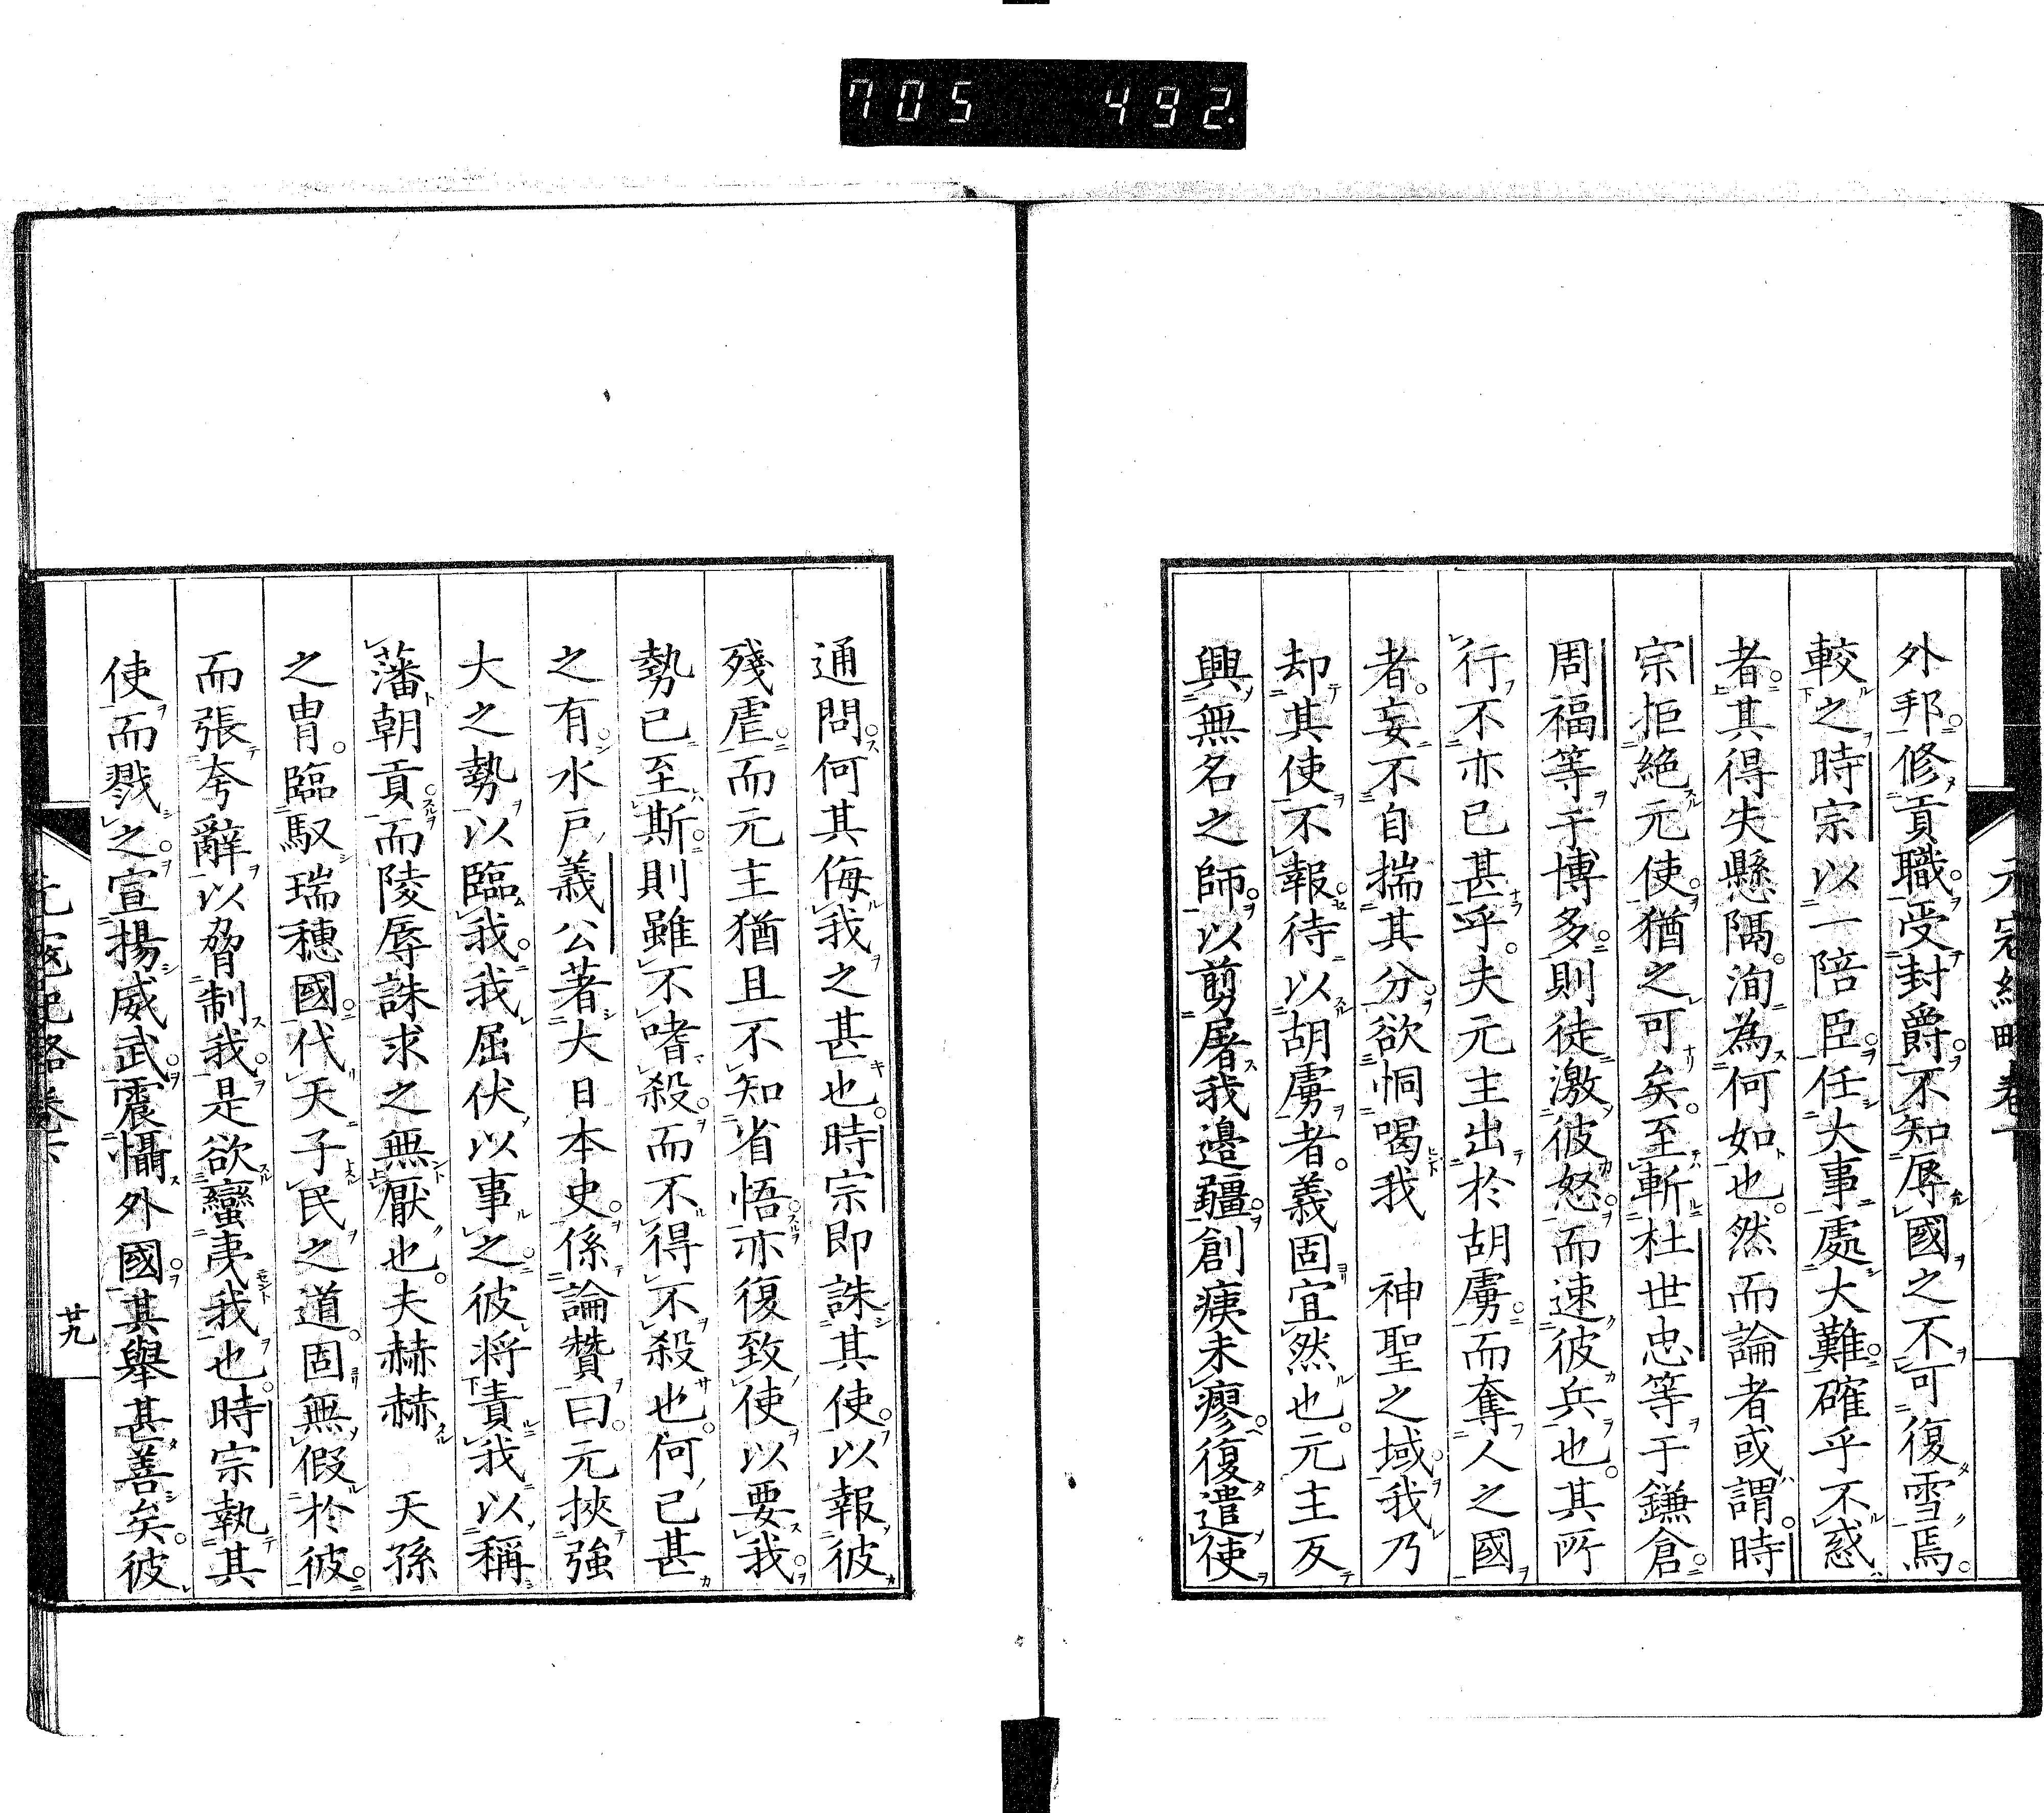 705 492.
外邦修貢職受封爵不知辱國之不可復雪焉
較之時宗以一陪臣任大事處大難確乎不惑
者其得失懸隔洵為何如也然而論者或謂時
宗拒絕元使猶之可矣至斬杜世忠等于鎌倉
周福等于博多則徒激彼怒而速彼兵也其所
行不亦已甚乎夫元主出於胡虜而奪人之國
者妄不自揣其分欲恫喝我 神聖之域我乃
却其使不報待以胡虜者義固宜然也元主反
興無名之師以剪屠我邊疆創痍未瘳復遣使
通問何其侮我之甚也時宗即誅其使以報彼
殘虐而元主猶且不知省悟亦復致使以要我
勢已至斯則雖不嗜殺而不得不殺也何已甚
之有水戶義公著大日本史係論贊曰元挾強
大之勢以臨我我屈伏以事之彼將責我以稱
藩朝貢而陵辱誅求之無厭也夫赫赫 天孫
之冑臨馭瑞穗國代天子民之道固無假於彼
而張夸辭以脅制我是欲蠻夷我也時宗執其
使而戮之宣揚威武震懾外國其舉甚善矣彼
廿九